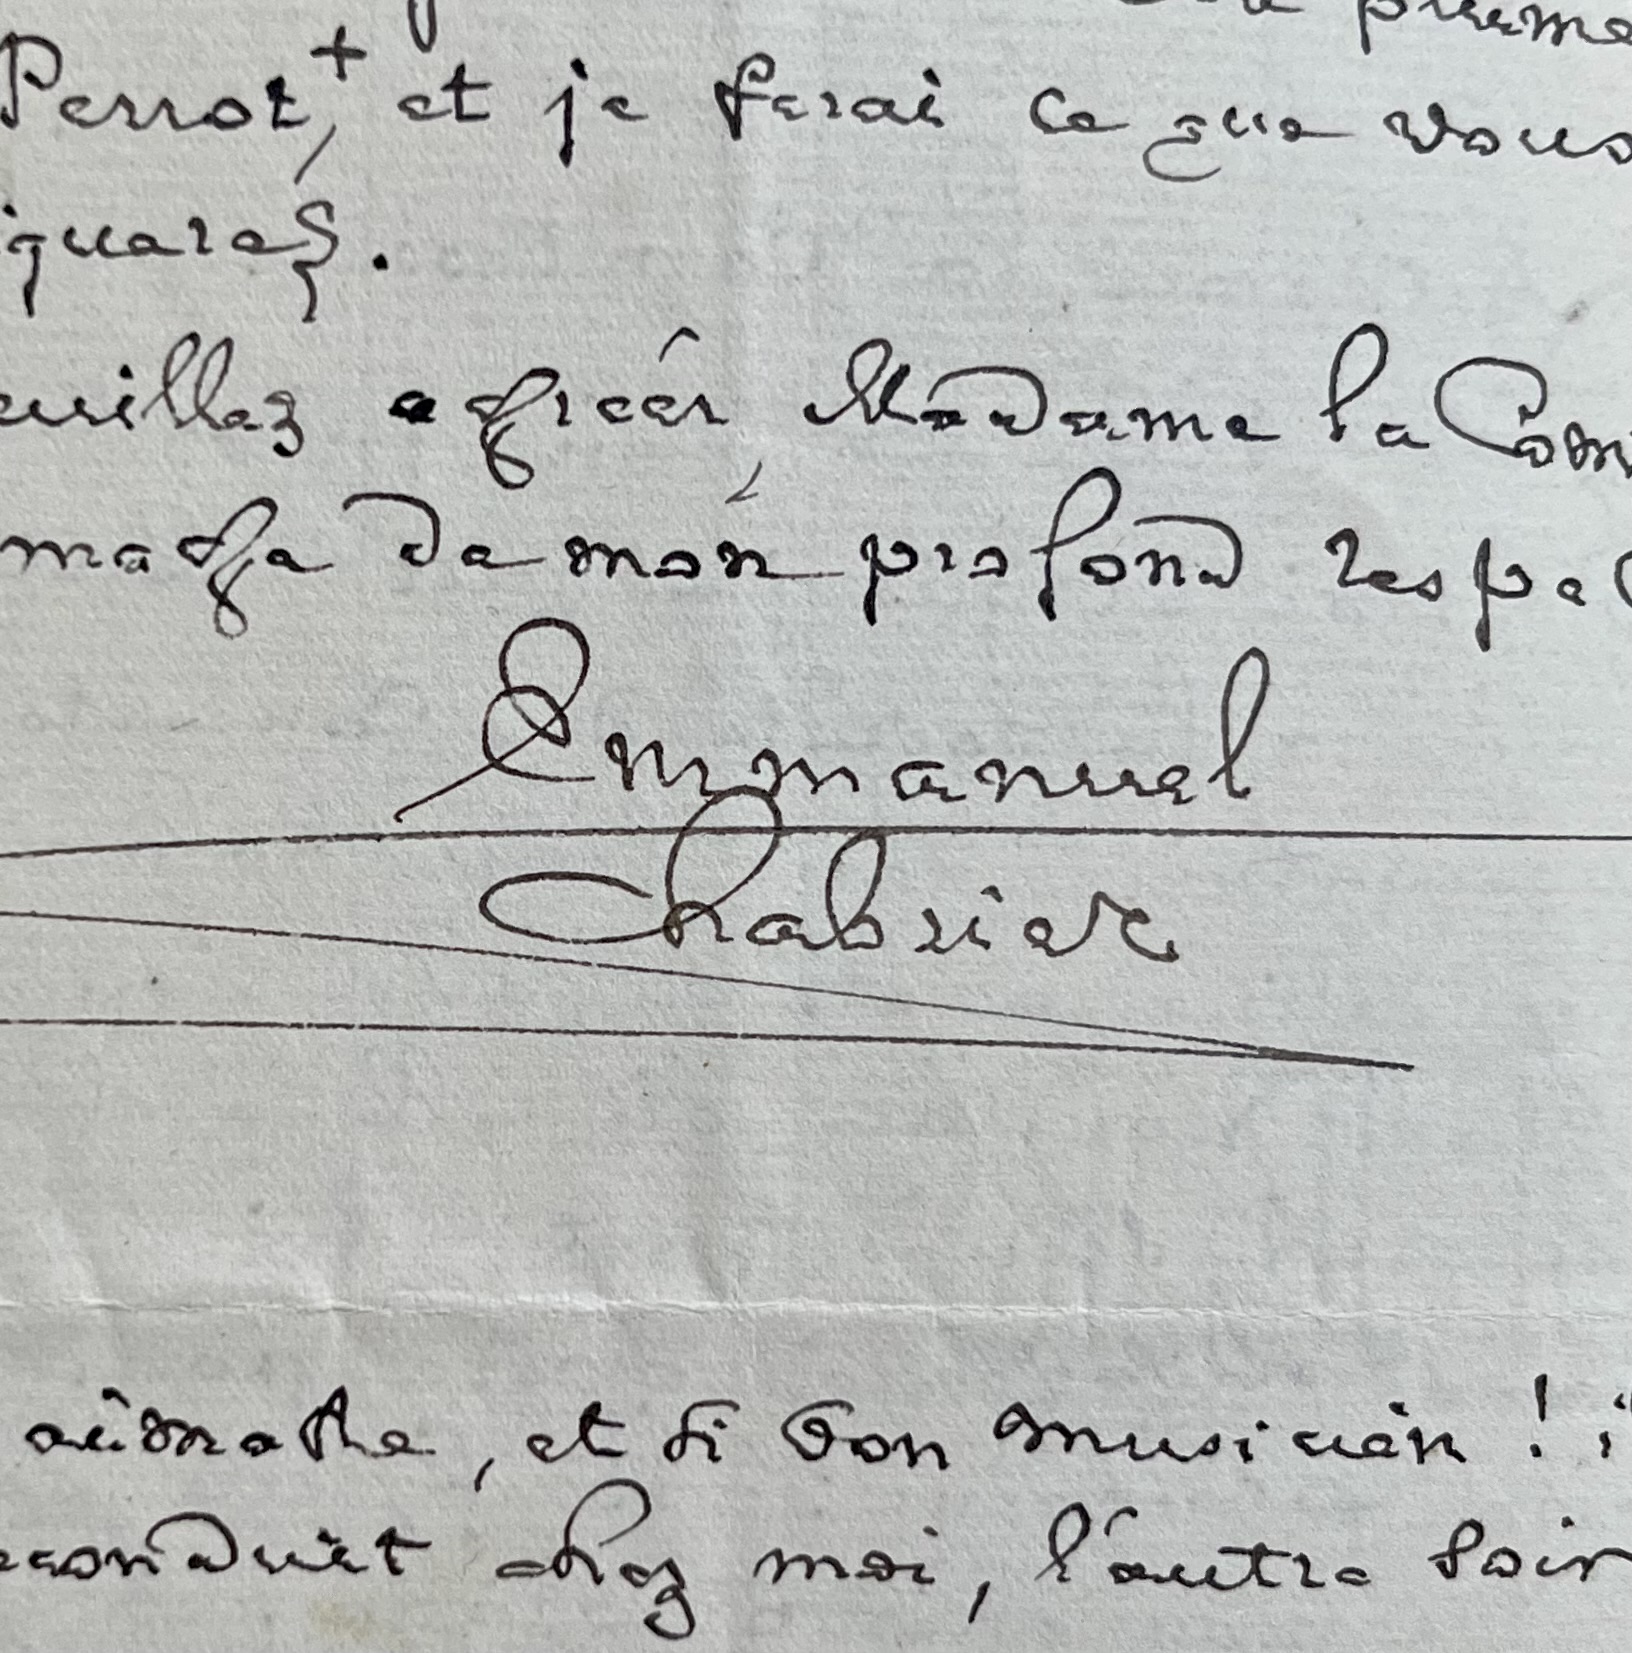 Perrot,+ et je ferai ce que vous
iquerez.
euillez agréer, Madame la Com
mage de mon profond respec
Emmanuel
Chabrier
, et si bon musicien !
econduit chez moi, l'autre soir